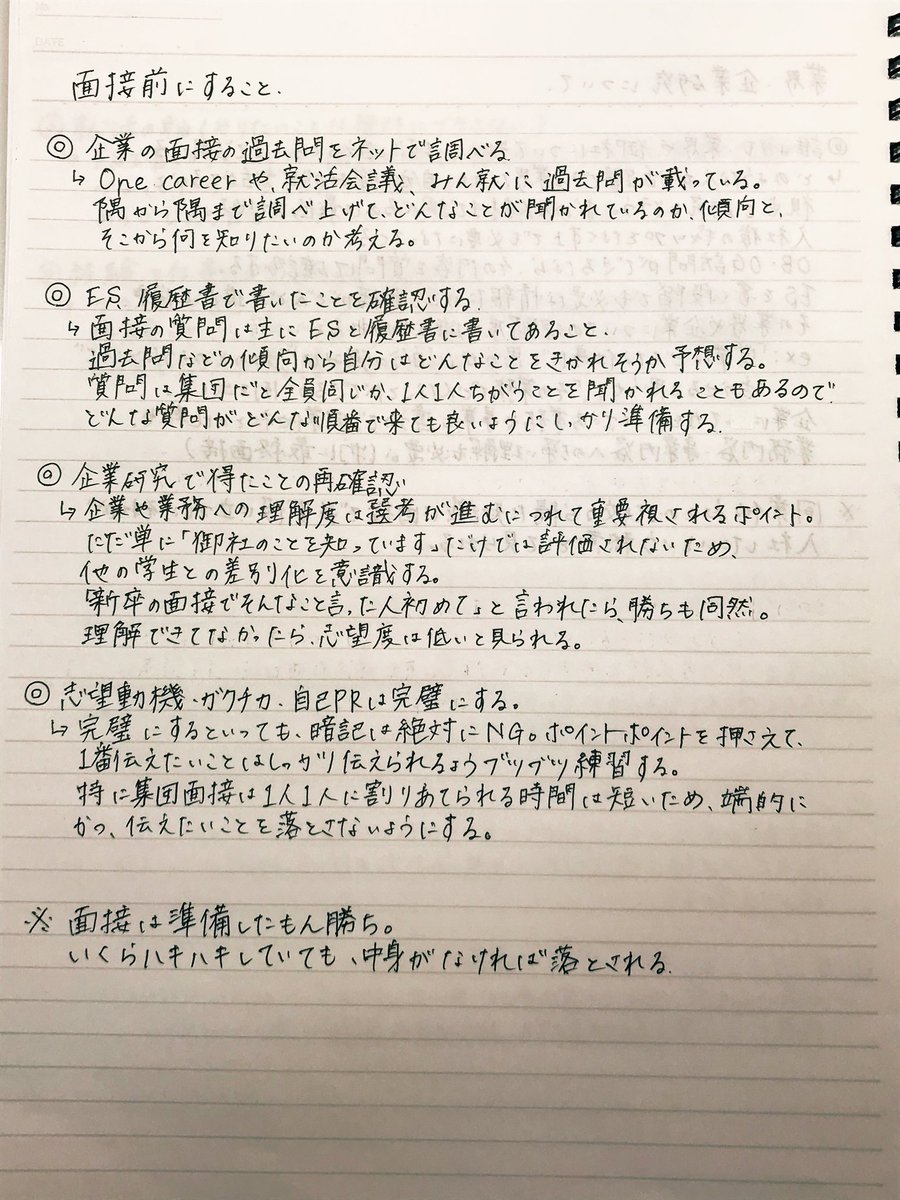 DATE
面接前にすること.
◎ 企業の面接の過去問をネットで調べる.
↳ One careerや、就活会議、みん就に過去問が載っている。
隅から隅まで調べ上げて、どんなことが聞かれているのか、傾向と、
そこから何を知りたいのか考える。
◎ ES、履歴書で書いたことを確認する.
↳ 面接の質問は主にESと履歴書に書いてあること.
過去問などの傾向から自分はどんなことをきかれそうか予想する。
質問は集団だと全員同じか、1人1人ちがうことを聞かれることもあるので
どんな質問がどんな順番で来ても良いようにしっかり準備する.
◎ 企業研究で得たことの再確認
↳ 企業や業務への理解度は選考が進むにつれて重要視されるポイント。
ただ単に「御社のことを知っています」だけでは評価されないため、
他の学生との差別化を意識する。
「新卒の面接でそんなこと言った人初めて」と言われたら、勝ちも同然。
理解できてなかったら、志望度は低いと見られる。
◎ 志望動機・ガクチカ、自己PRは完璧にする。
↳ 完璧にするといっても、暗記は絶対にNG。ポイントポイントを押さえて、
1番伝えたいことはしっかり伝えられるようブツブツ練習する。
特に集団面接は1人1人に割りあてられる時間は短いため、端的に
かつ、伝えたいことを落とさないようにする。
※ 面接は準備したもん勝ち。
いくらハキハキしていても、中身がなければ落とされる.